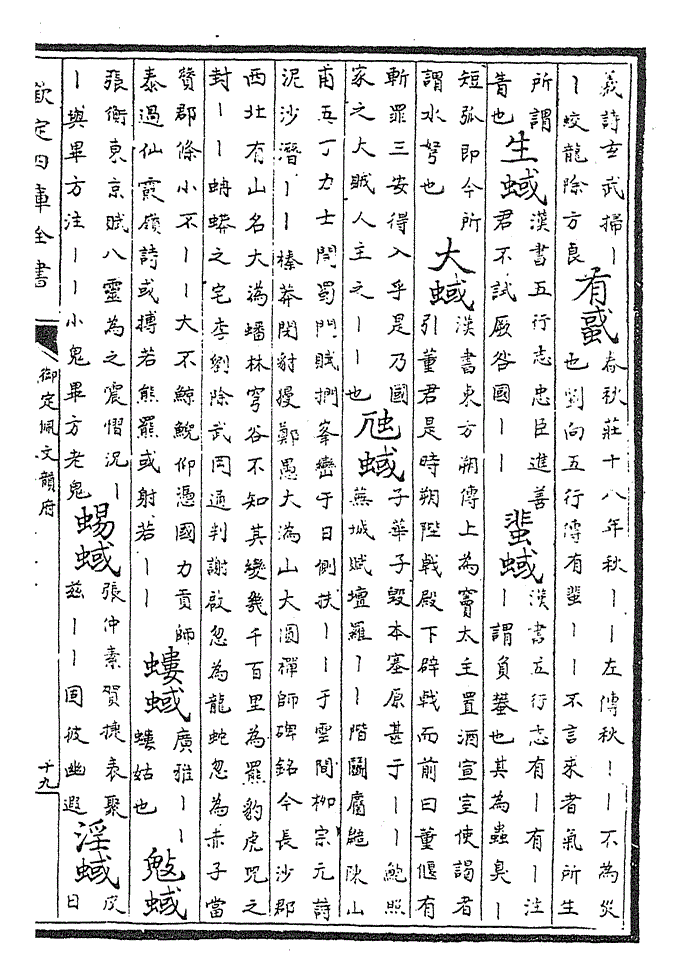 義詩玄武掃丨
丨蛟龍除方良
有蜮
春秋莊十八年秋丨丨左傳秋丨丨不為災
也劉向五行傳有蜚丨丨不言來者氣所生
所謂
眚也
生蜮
漢書五行志忠臣進善
君不試厥咎國丨丨
蜚蜮
漢書五行志有丨有丨注
丨謂負蠜也其為蟲臭丨
短弧即今所
謂水弩也
大蜮
漢書東方朔傳上為竇太主置酒宣室使謁者
引董君是時朔陛戟殿下辟戟而前曰董偃有
斬罪三安得入乎是乃國
家之大賊人主之丨丨也
虺蜮
子華子毀本塞原甚于丨丨鮑照
蕪城賦壇羅丨丨階鬭腐鼯陳山
甫五丁力士開蜀門賦捫峯巒于日側扶丨丨于雲間柳宗元詩
泥沙潛丨丨榛莽閉豺獌鄭愚大溈山大圓禪師碑銘今長沙郡
西北有山名大溈蟠林穹谷不知其變幾千百里為羆豹虎兕之
封丨丨蚺蟒之宅李劉除武岡通判謝啟忽為龍蛇忽為赤子當
贊郡條小不丨丨大不鯨鯢仰憑國力貢師
泰過仙霞嶺詩或搏若熊羆或射若丨丨
螻蜮
廣雅丨丨
螻姑也
魃蜮
張衡東京賦八靈為之震慴況丨
丨與畢方注丨丨小鬼畢方老鬼
蜴蜮
張仲素賀捷表聚
茲丨丨固彼幽遐
淫蜮
皮
日
欽定四庫全書
御定佩文韻府
十九